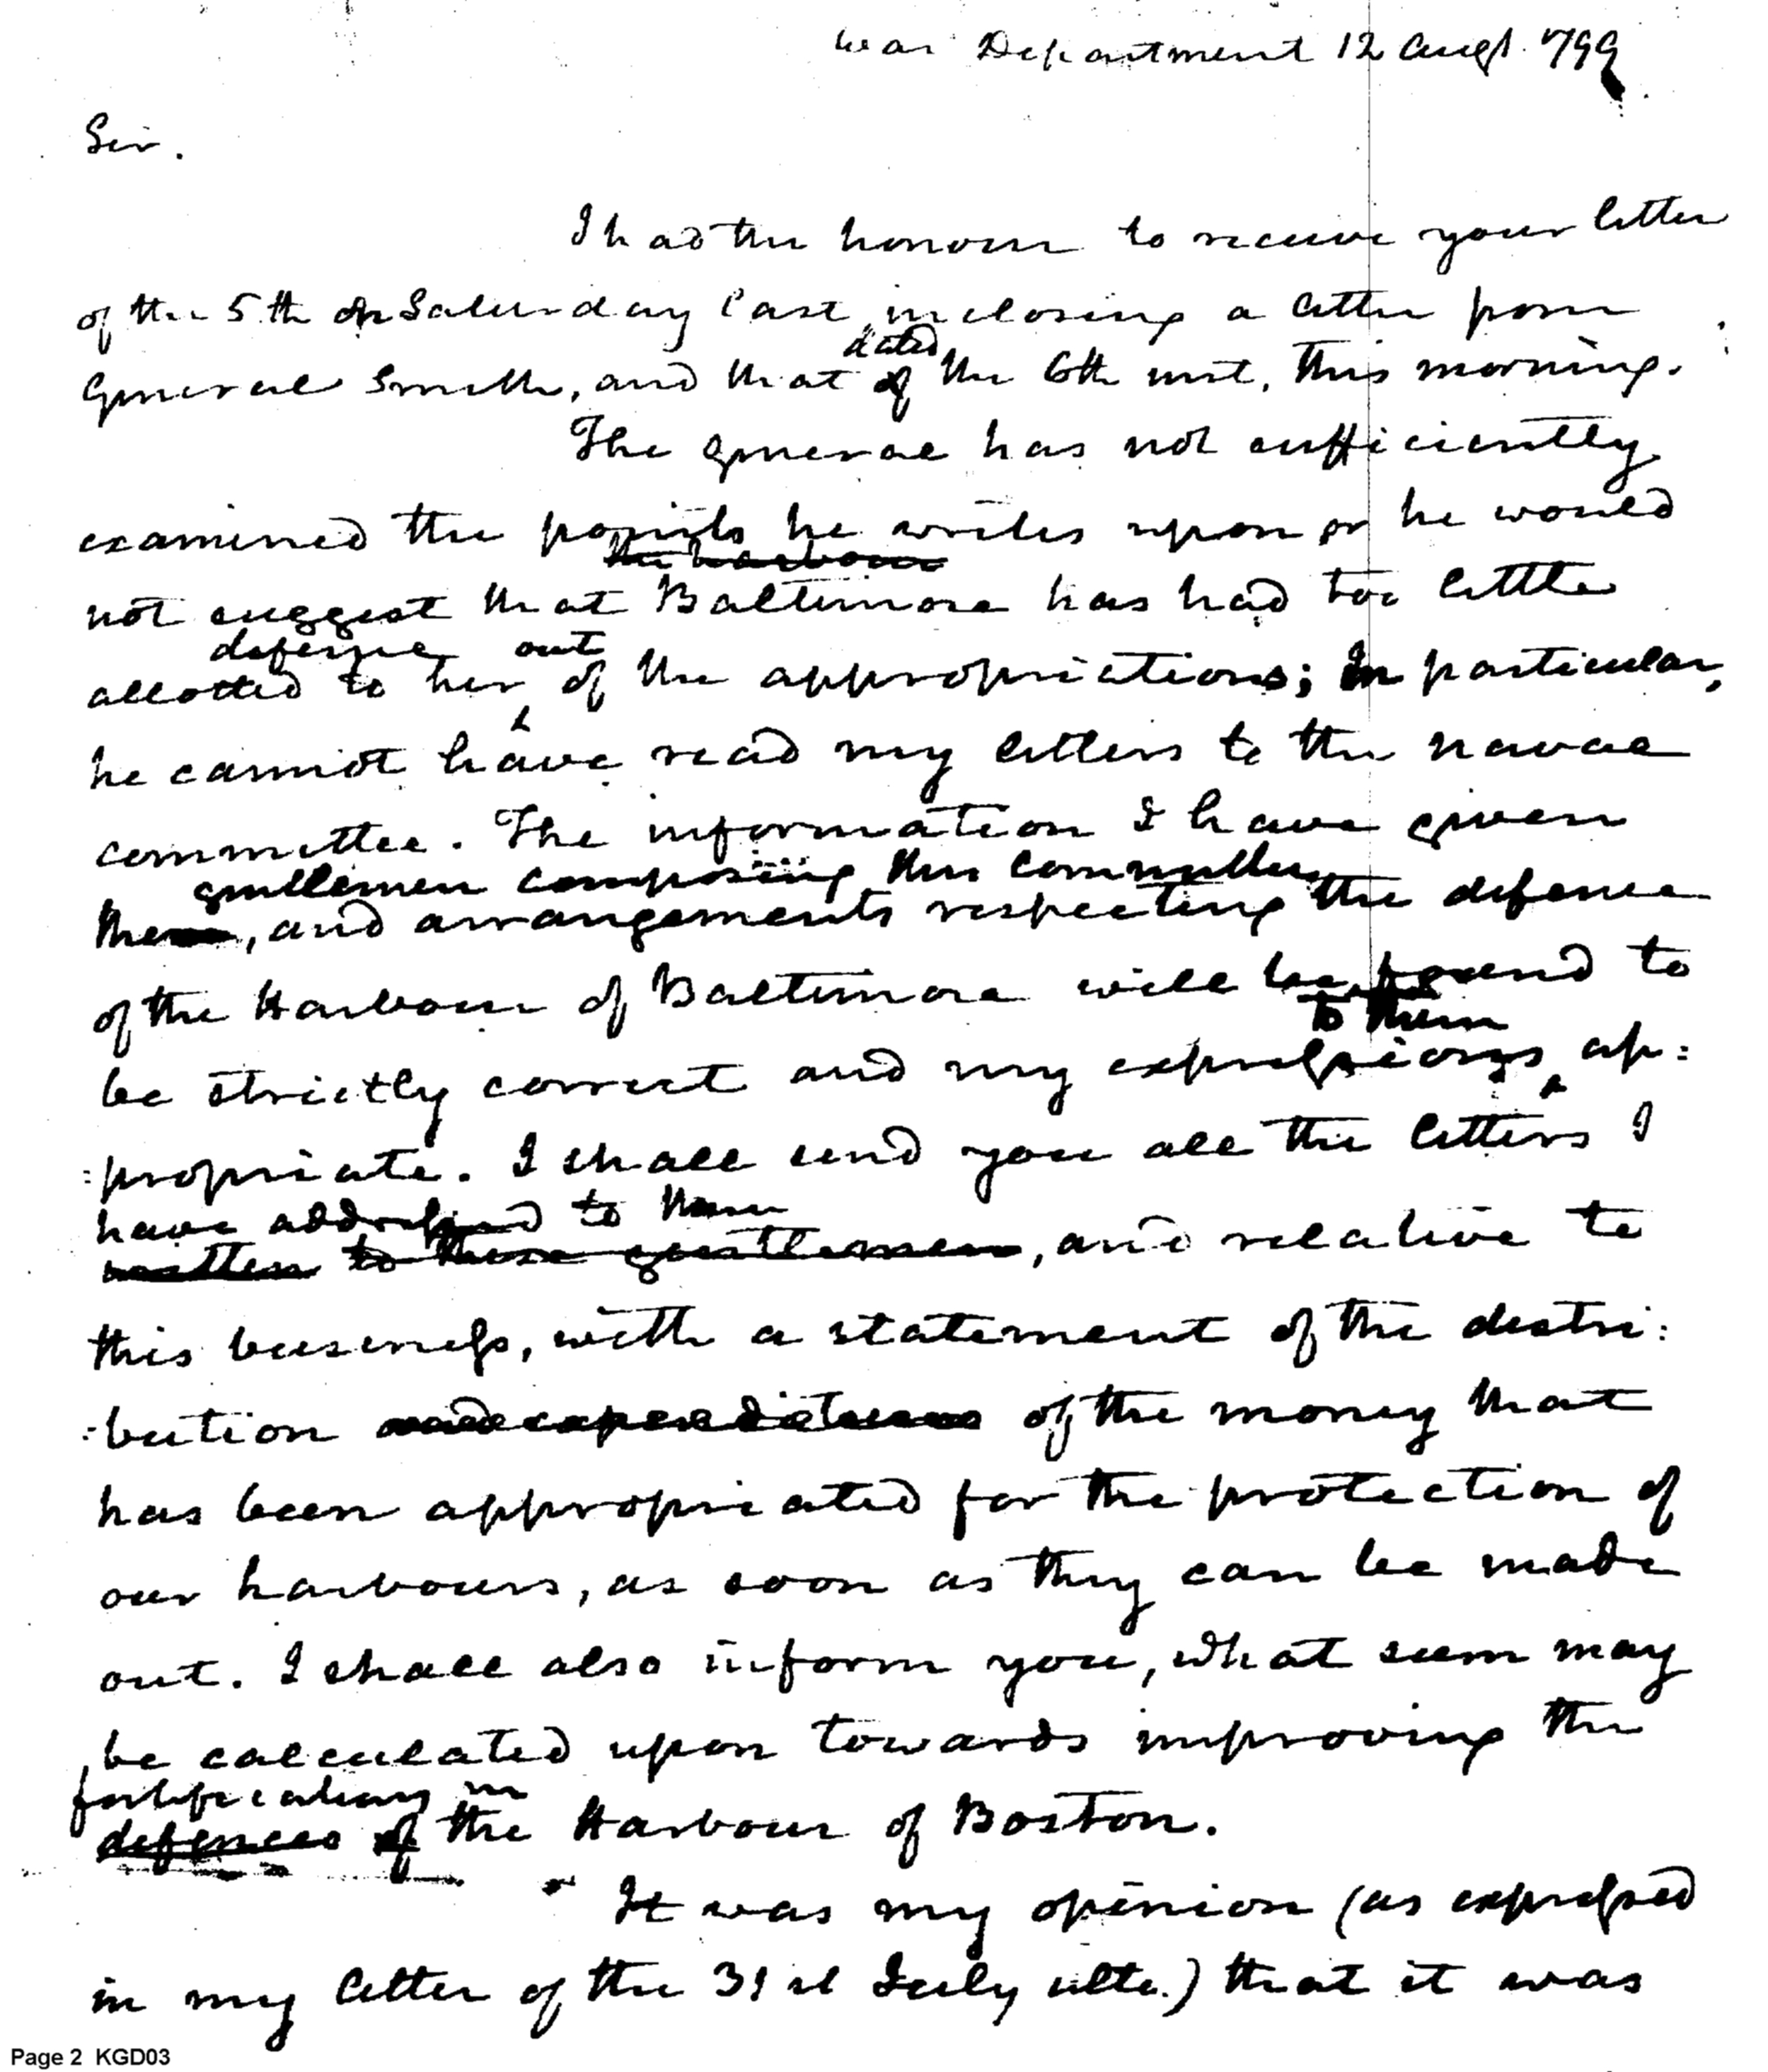 War Department 12 Augt. 799
Sir.
I had the honour to receive your letter
of the 5th on Saturday last, inclosing a letter from
dated
General Smith, and that of the 6th inst. this morning.
The general has not sufficiently
examined the points he writes upon or he would
the harbour
not suggest that Baltimore has had too little
defence out
allotted to her of the appropriations; In particular,
he cannot have read my letters to the naval
committee. The information I have given
gentlemen composing this committee
the, and arrangements respecting the defence
of the Harbour of Baltimore will be found to
to them
be strictly correct and my expressions ap:
:propriate. I shall send you all the letters I
have addressed to them
written to these gentlemen, and relative to
this business, with a statement of the distri:
:bution and expenditures of the money that
has been appropriated for the protection of
our harbours, as soon as they can be made
out. I shall also inform you, what sum may
be calculated upon towards improving the
fortifications in
defences of the Harbour of Boston.
It was my opinion (as expressed
in my letter of the 31st July ulto.) that it was
Page 2 KGD03